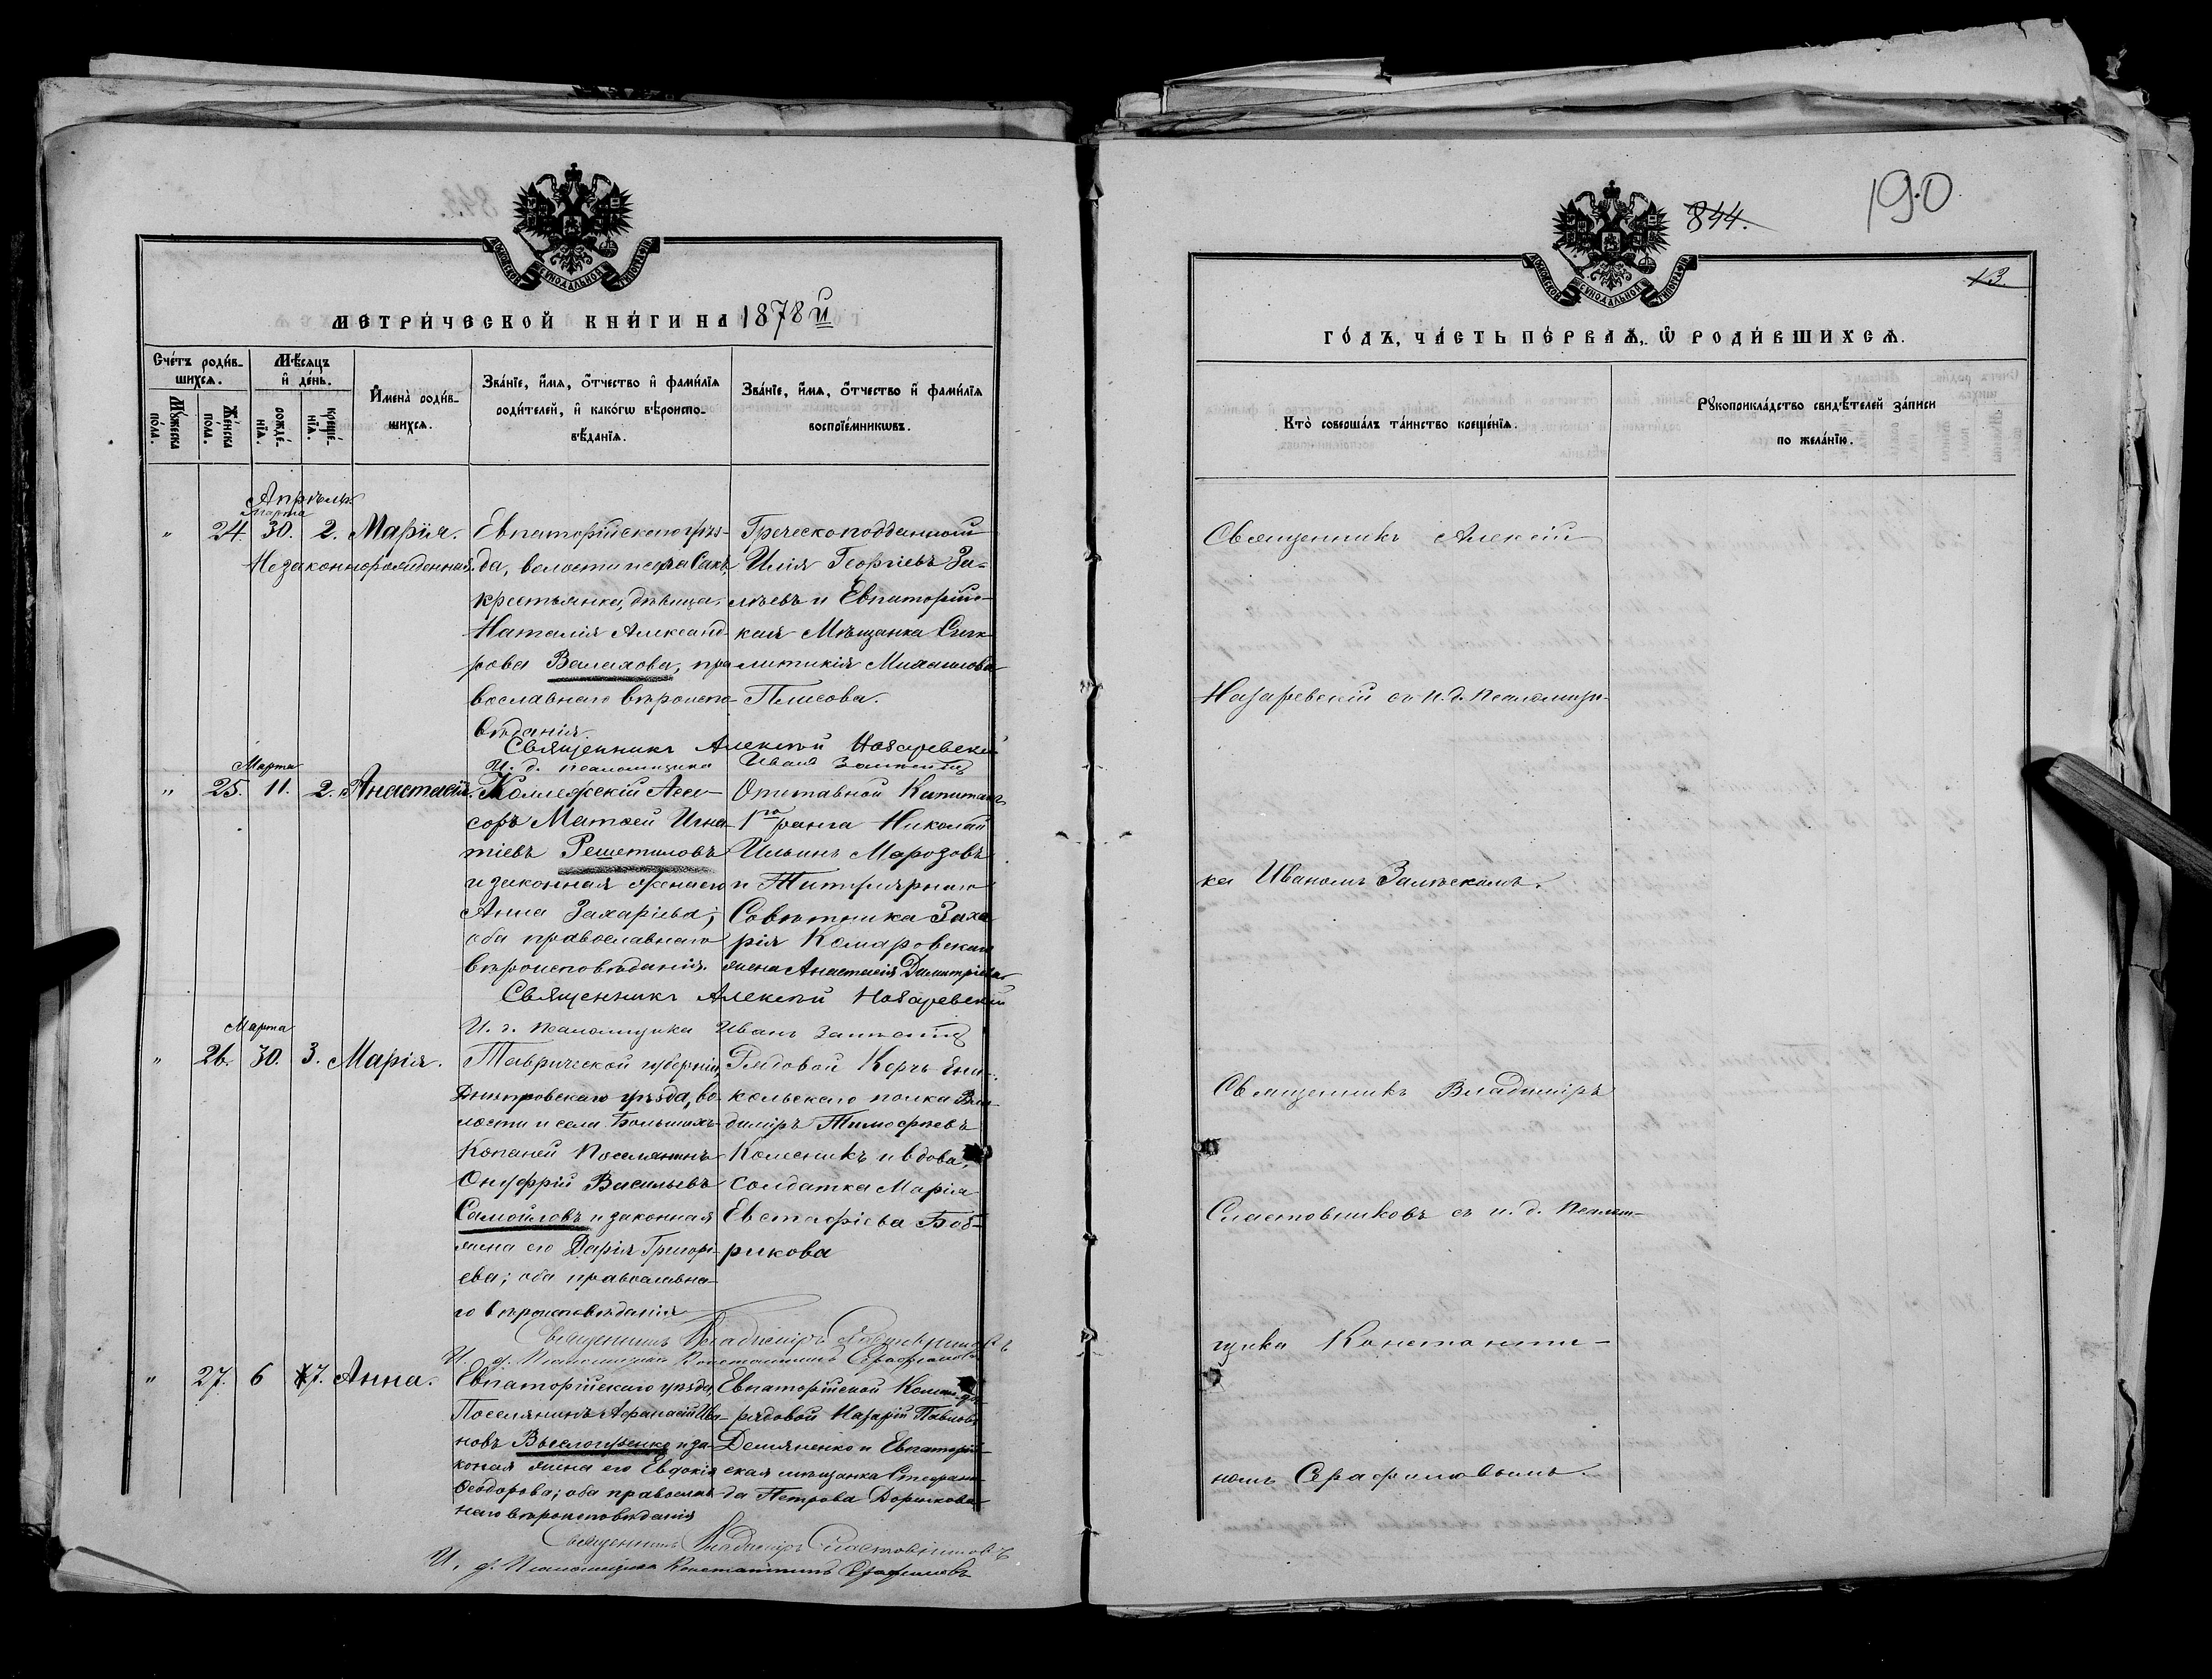 МОСКОВСКОЙ СѴНОДАЛЬНОЙ ТИПОГРАФІИ
МЕТРИ́ЧЕСКОЙ КНИ́ГИ НА 1878 й
Сче́тъ роди́в-
шихсѧ.
Мѣ́сяцъ
и҆ де́нь.
И҆мена̀ роди́в-
шихсѧ.
Зва́нїе, и҆́мѧ, ѻ҆́тчество и҆ фами́лїѧ
роди́телей, и҆ како́гѡ вѣроиспо-
вѣ́данїѧ.
Зва́нїе, и҆́мѧ, ѻ҆́тчество и҆ фами́лїѧ
воспрїе́мникѡвъ.
Мꙋ́жеска
по́ла.
Же́нска
по́ла.
рожде́-
нїѧ.
креще́-
нїѧ.
Апрѣль
Марта
" 24. 30. 2. Марія.
Незаконнорожденная.
Евпаторійскаго уѣз-
да, волости и села Сакъ,
крестьянка, дѣвица,
Наталія Александ-
рова Валахова, пра-
вославнаго вѣроиспо-
вѣданія.
Греческоподданный
Илія Георгіевъ За-
лѣевъ и Евпаторійс-
кая Мѣщанка
Михаилова
Плисова.
Священникъ Алексѣй Назаревскій
И. д. псаломщика Иванъ Залѣскій
Марта
" 25. 11. 2. Анастасія.
Коллежскій Ассе-
соръ Матѳей Игна-
тіевъ Решетиловъ
и законная жена его
Анна Захаріева;
оба православнаго
вѣроисповѣданія.
Отставной Капитанъ
1го ранга Николай
Ильинъ Марозовъ
и Титулярнаго
Совѣтника Заха-
рія Комаровскаго
жена Анастасія Димитріева
Священникъ Алексѣй Назаревскій
И. д. псаломщика Иванъ Залѣскій
Марта
" 26. 30. 3. Марія.
Таврической губерніи,
Днѣпровскаго уѣзда, во-
лости и села Большихъ
Копаней Поселянинъ
Онуфрій Васильевъ
Самойловъ и законная
жена его Дарія Григорі-
ева; оба православна-
го вѣроисповѣданія
Рядовой Керчь-Ени-
кольскаго полка Вла-
диміръ Тимофѣевъ
Колесникъ и вдова,
солдатка Марія
Евстафіева Боб-
рикова
Священникъ Владиміръ Сластовниковъ
И. д. Псаломщика Константинъ Серафимовъ
" 27. 6 7. Анна.
Евпаторійскаго уѣзда,
Поселянинъ Афанасій Ива-
новъ и за-
конная жена его Евдокія
Ѳеодорова; оба православ-
наго вѣроисповѣданія
Евпаторійской Команды
рядовой Назарій Павловъ
Демяненко и Евпаторій-
ская мѣщанка Степани-
да Петрова Дорыкова
Священникъ Владиміръ Сластовниковъ
И. д. Псаломщика Константинъ Серафимовъ
844.
190
13.
МОСКОВСКОЙ СѴНОДАЛЬНОЙ ТИПОГРАФІИ
ГО́ДЪ, ЧА́СТЬ ПЕ́РВАѦ, Ѡ҆ РОДИ́ВШИХСѦ.
Кто̀ соверша́лъ та́инство креще́нїѧ.
Рꙋкоприкла́дство свидѣ́телей за́писи
по жела́нїю.
Священникъ Алексій
Назаревскій съ и. д. Псаломщи-
ка Иваномъ Залѣскомъ.
Священникъ Владиміръ
Сластовниковъ съ и. д. Псалом-
щика Константи-
номъ Серафимовымъ.